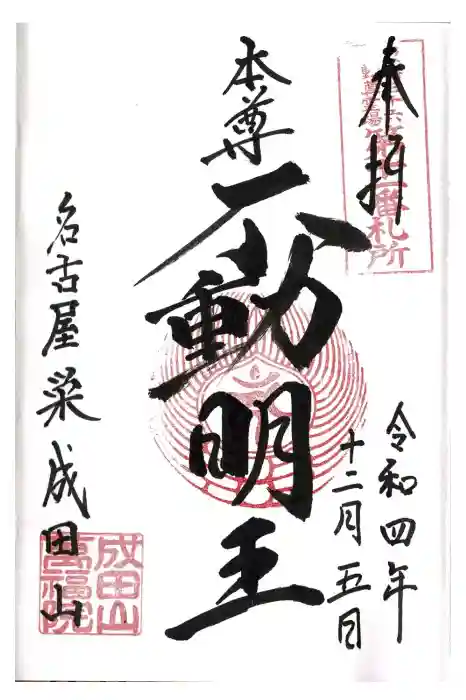 奉拝
第十一番札所
令和四年
十二月五日
本尊
不動明王
名古屋栄成田山
成田山
萬福院